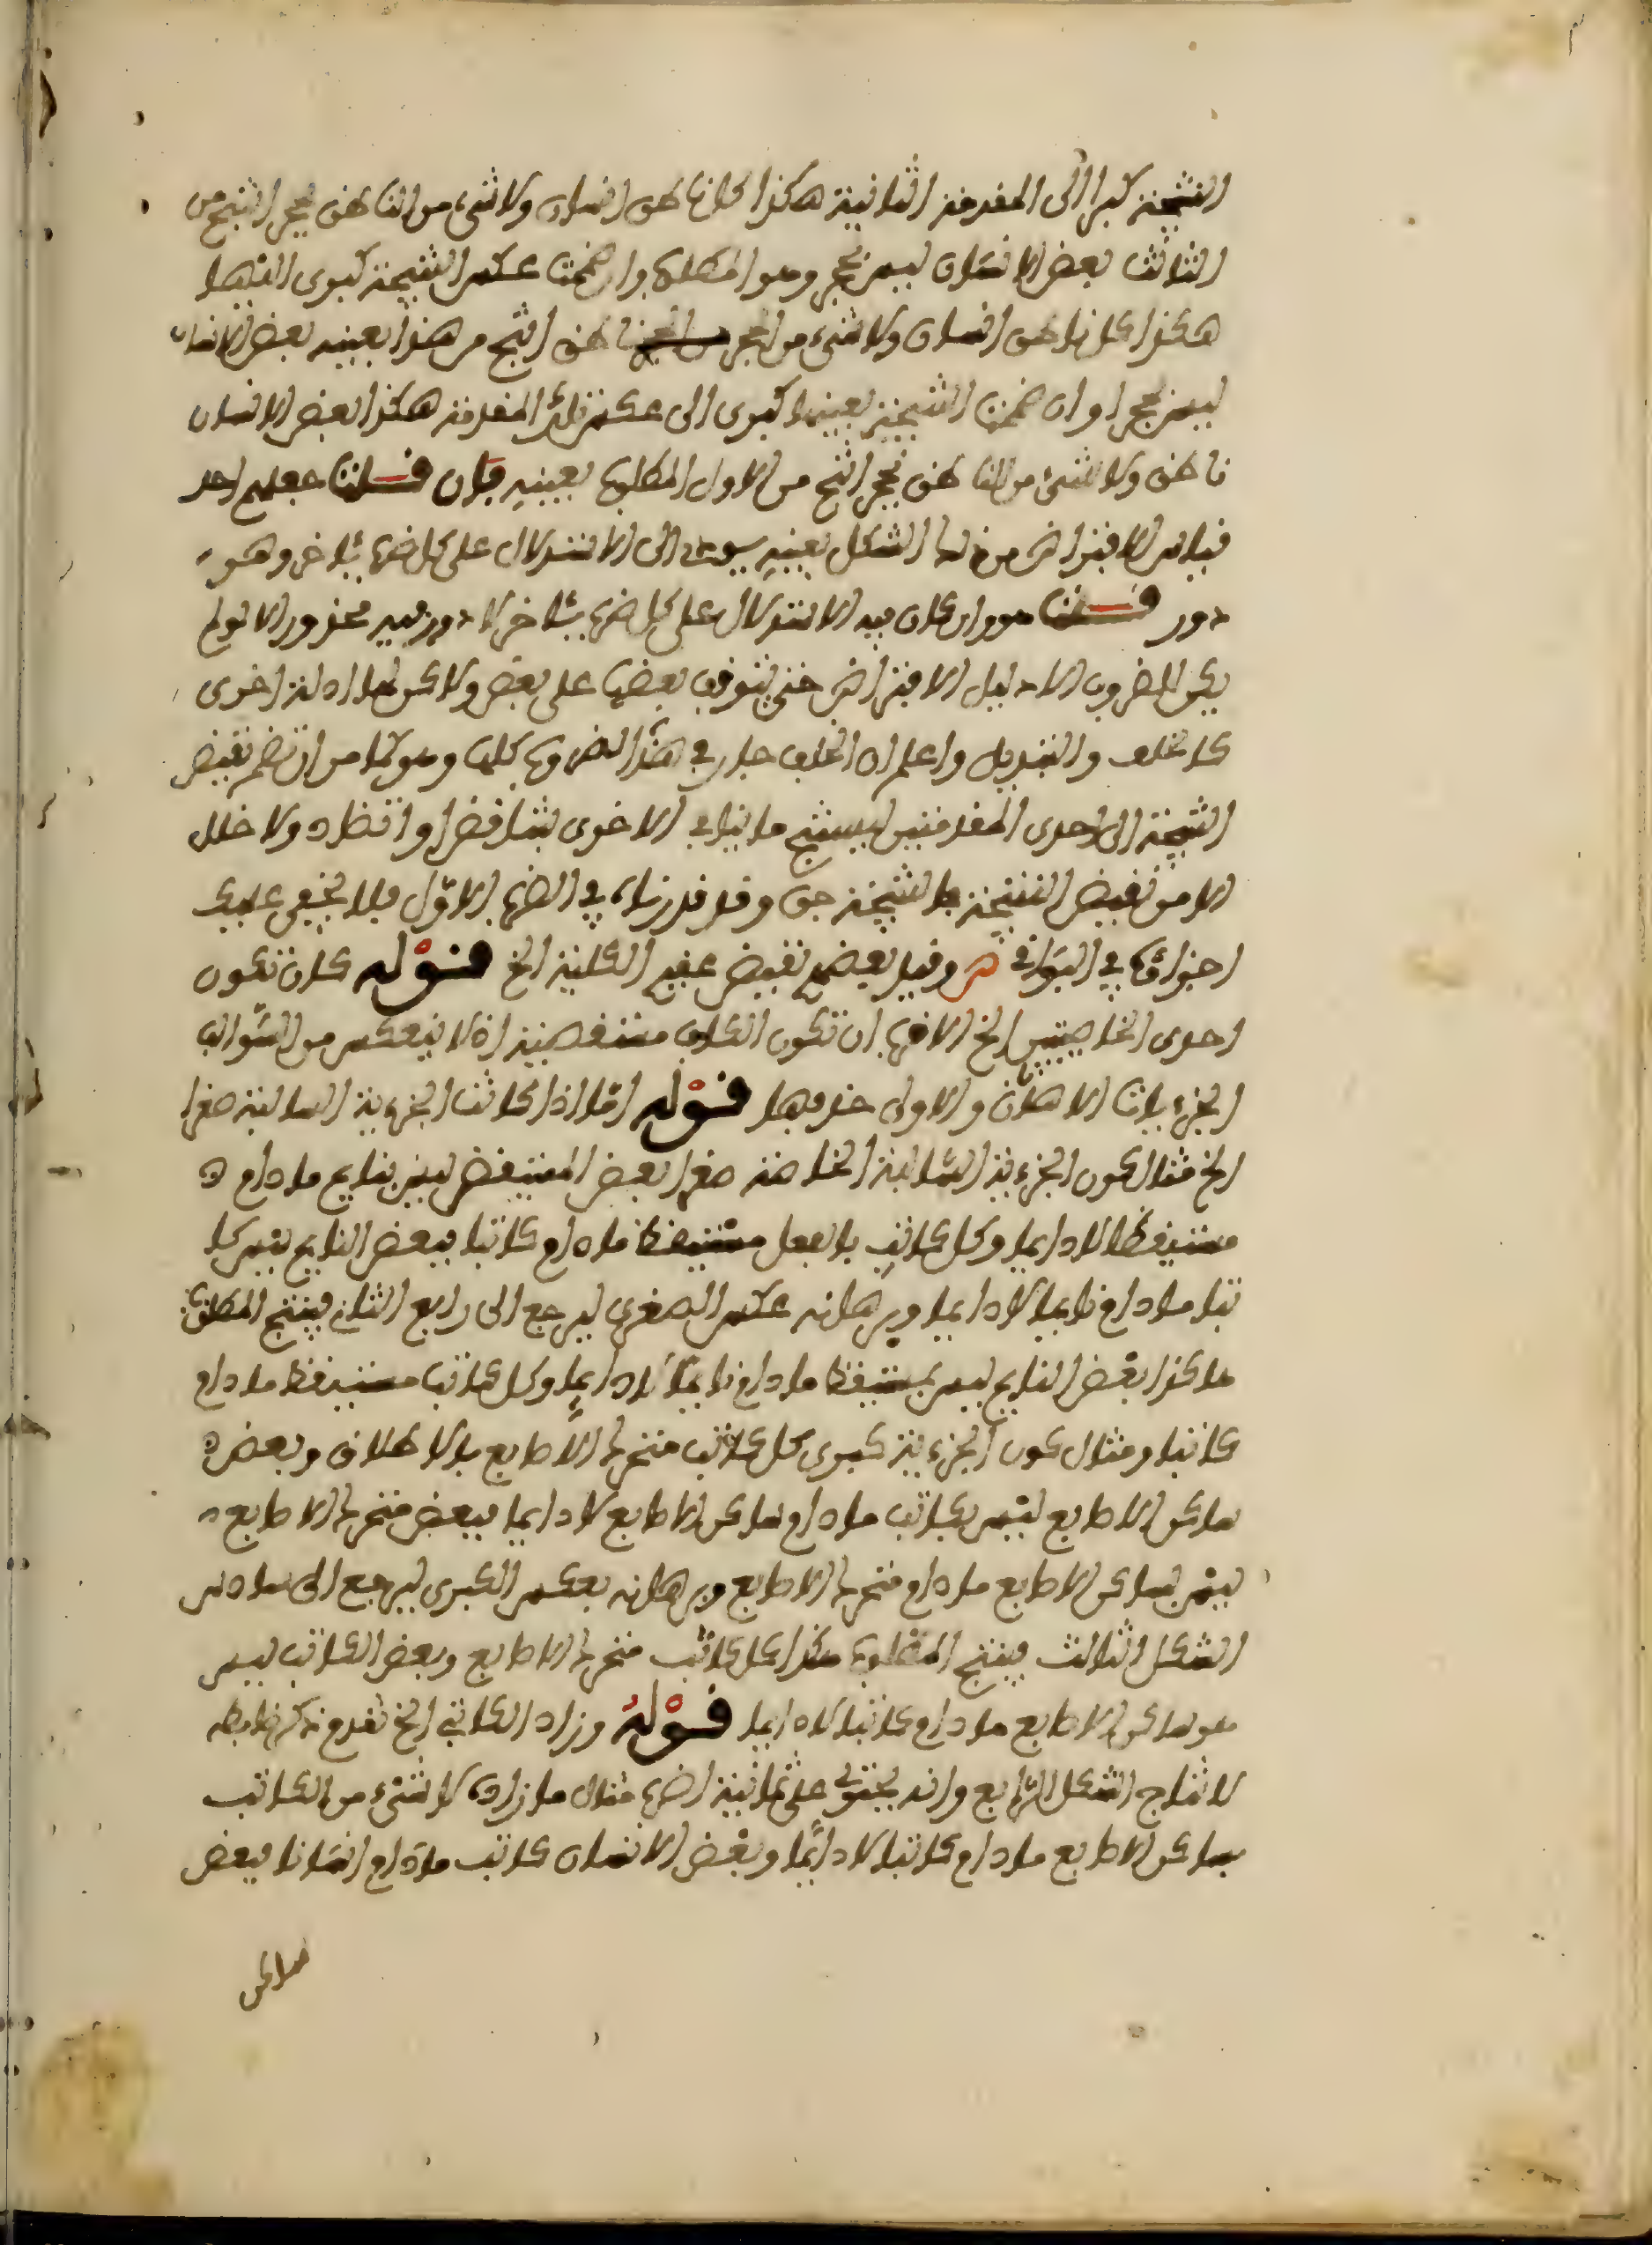 النتيجة كبرا الى المقدمة الثانية هكذا كل ناطق انسان ولا شيء من الناطق بحجر انتج من
الثالث بعض الانسان ليس بحجر وهو المطلوب وان ضممت عكس النتيجة كبرى اليها
هكذا كل ناطق انسان ولا شيء من الحجر ناطق انتج من هذا بعينه بعض الانسان
ليس بحجر او ان ضممت النتيجة بعينها كبرى الى عكس تلك المقدمة هكذا بعض الانسان
ناطق ولا شيء من الناطق بحجر انتج من الاول المطلوب بعينه فان قلت جعلهم احد
قياس الاقتراض من هذا الشكل بعينه الى الاستدلال على كل ضرب بئاخر وهو
دور قلت هو وان كان فيه الاستدلال على كل ضرب بئاخر لا دور فيه محذور الا لو لم
يكن للضروب الا دليل الاقتراض حتى يتوقف بعضها على بعض ولاكن لها ادلة اخرى
كالخلف والتبديل واعلم ان الخلف جار في هذه الضروب كلها وهو كما مر ان تضم نقيض
النتيجة الى احدى المقدمتين ليستنتج ما ينافي الاخرى بتناقض او تضاد ولا خلل
الا من نقيض النتيجة فالنتيجة حق وقد قررناه في الضرب الاول فلا يخفى عليك
اجراؤه في البواقي ش وقيل بعضهم نقيض عقيم الكلية الخ قوله كان تكون
احدى الخاصيتين الخ الاقرب ان تكون الكاف مستقصية اذ لا ينعكس من السوالب
الجزءيات الا هاتان والاولى حذفها قوله اما اذا كانت الجزءية السالبة صغرا
الخ مثال كون الجزءية السالبة الخاصة صغرا بعض المستيقض ليس بنايم ما دام
مستيقظا لا دايما وكل كاتب بالفعل مستيقظ ما دام كاتبا فبعض النايم ليس كا
تبا ما دام نايما لا دايما وبرهانه عكس الصغرى ليرجع الى رابع الثاني فينتج المطلوب
هاكذا بعض النايم ليس بمستيقظ ما دام نايما لا دايما وكل كاتب مستيقظ ما دام
كاتبا ومثال كون الجزءية كبرى كل كاتب متحرك الاصابع بالاطلاق وبعض
ساكن الاصابع ليس بكاتب ما دام ساكن الاصابع لا دايما فبعض متحرك الاصابع
ليس بساكن الاصابع ما دام متحرك الاصابع وبرهانه بعكس الكبرى ليرجع الى سادس
الشكل الثالث فينتج المطلوب هكذا كل كاتب متحرك الاصابع وبعض الكاتب ليس
هو ساكن الاصابع ما دام كاتبا لا دايما قوله وزاد الكاتبي الخ تقدم ذكر ضابطه
لانتاج الشكل الرابع وانه يحتوي على ثمانية اضرب مثال ما زاده لا شيء من الكاتب
بساكن الاصابع ما دام كاتبا لا دايما وبعض الانسان كاتب ما دام انسانا فبعض
ساكن